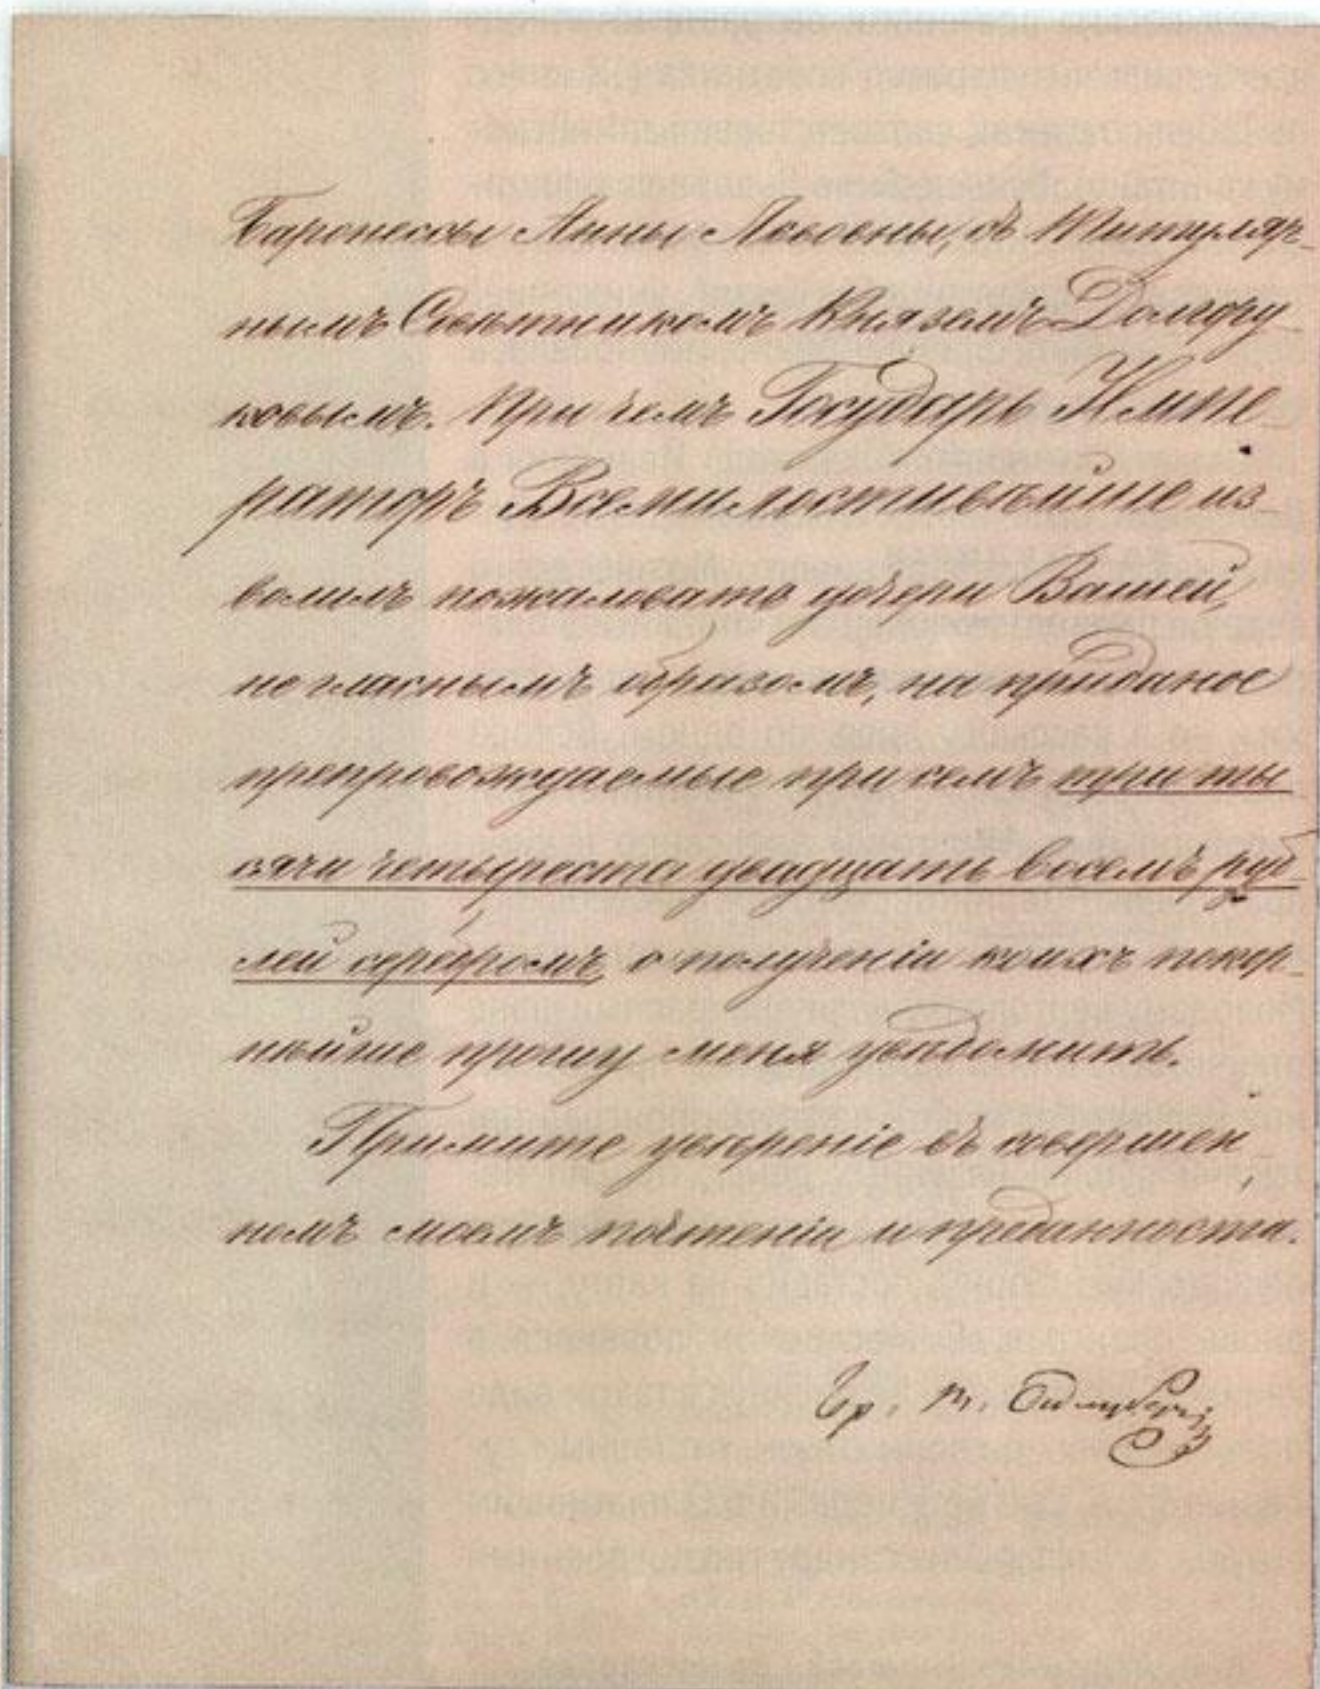 Баронессы Анны Львовны, съ Титуляр-
нымъ Советникомъ Княземъ Долгору-
ковымъ. При чемъ Государь Импе-
раторъ Всемилостивѣйше из-
волилъ пожаловать дочери Вашей,
не гласнымъ образомъ, на приданое
препровождаемые при семъ три ты-
сячи четыреста двадцать восемь руб-
лей серебромъ, о полученіи коихъ покор-
нѣйше прошу меня увѣдомить.
Примите увѣреніе въ совершен-
номъ моемъ почтеніи и преданности.
Гр.